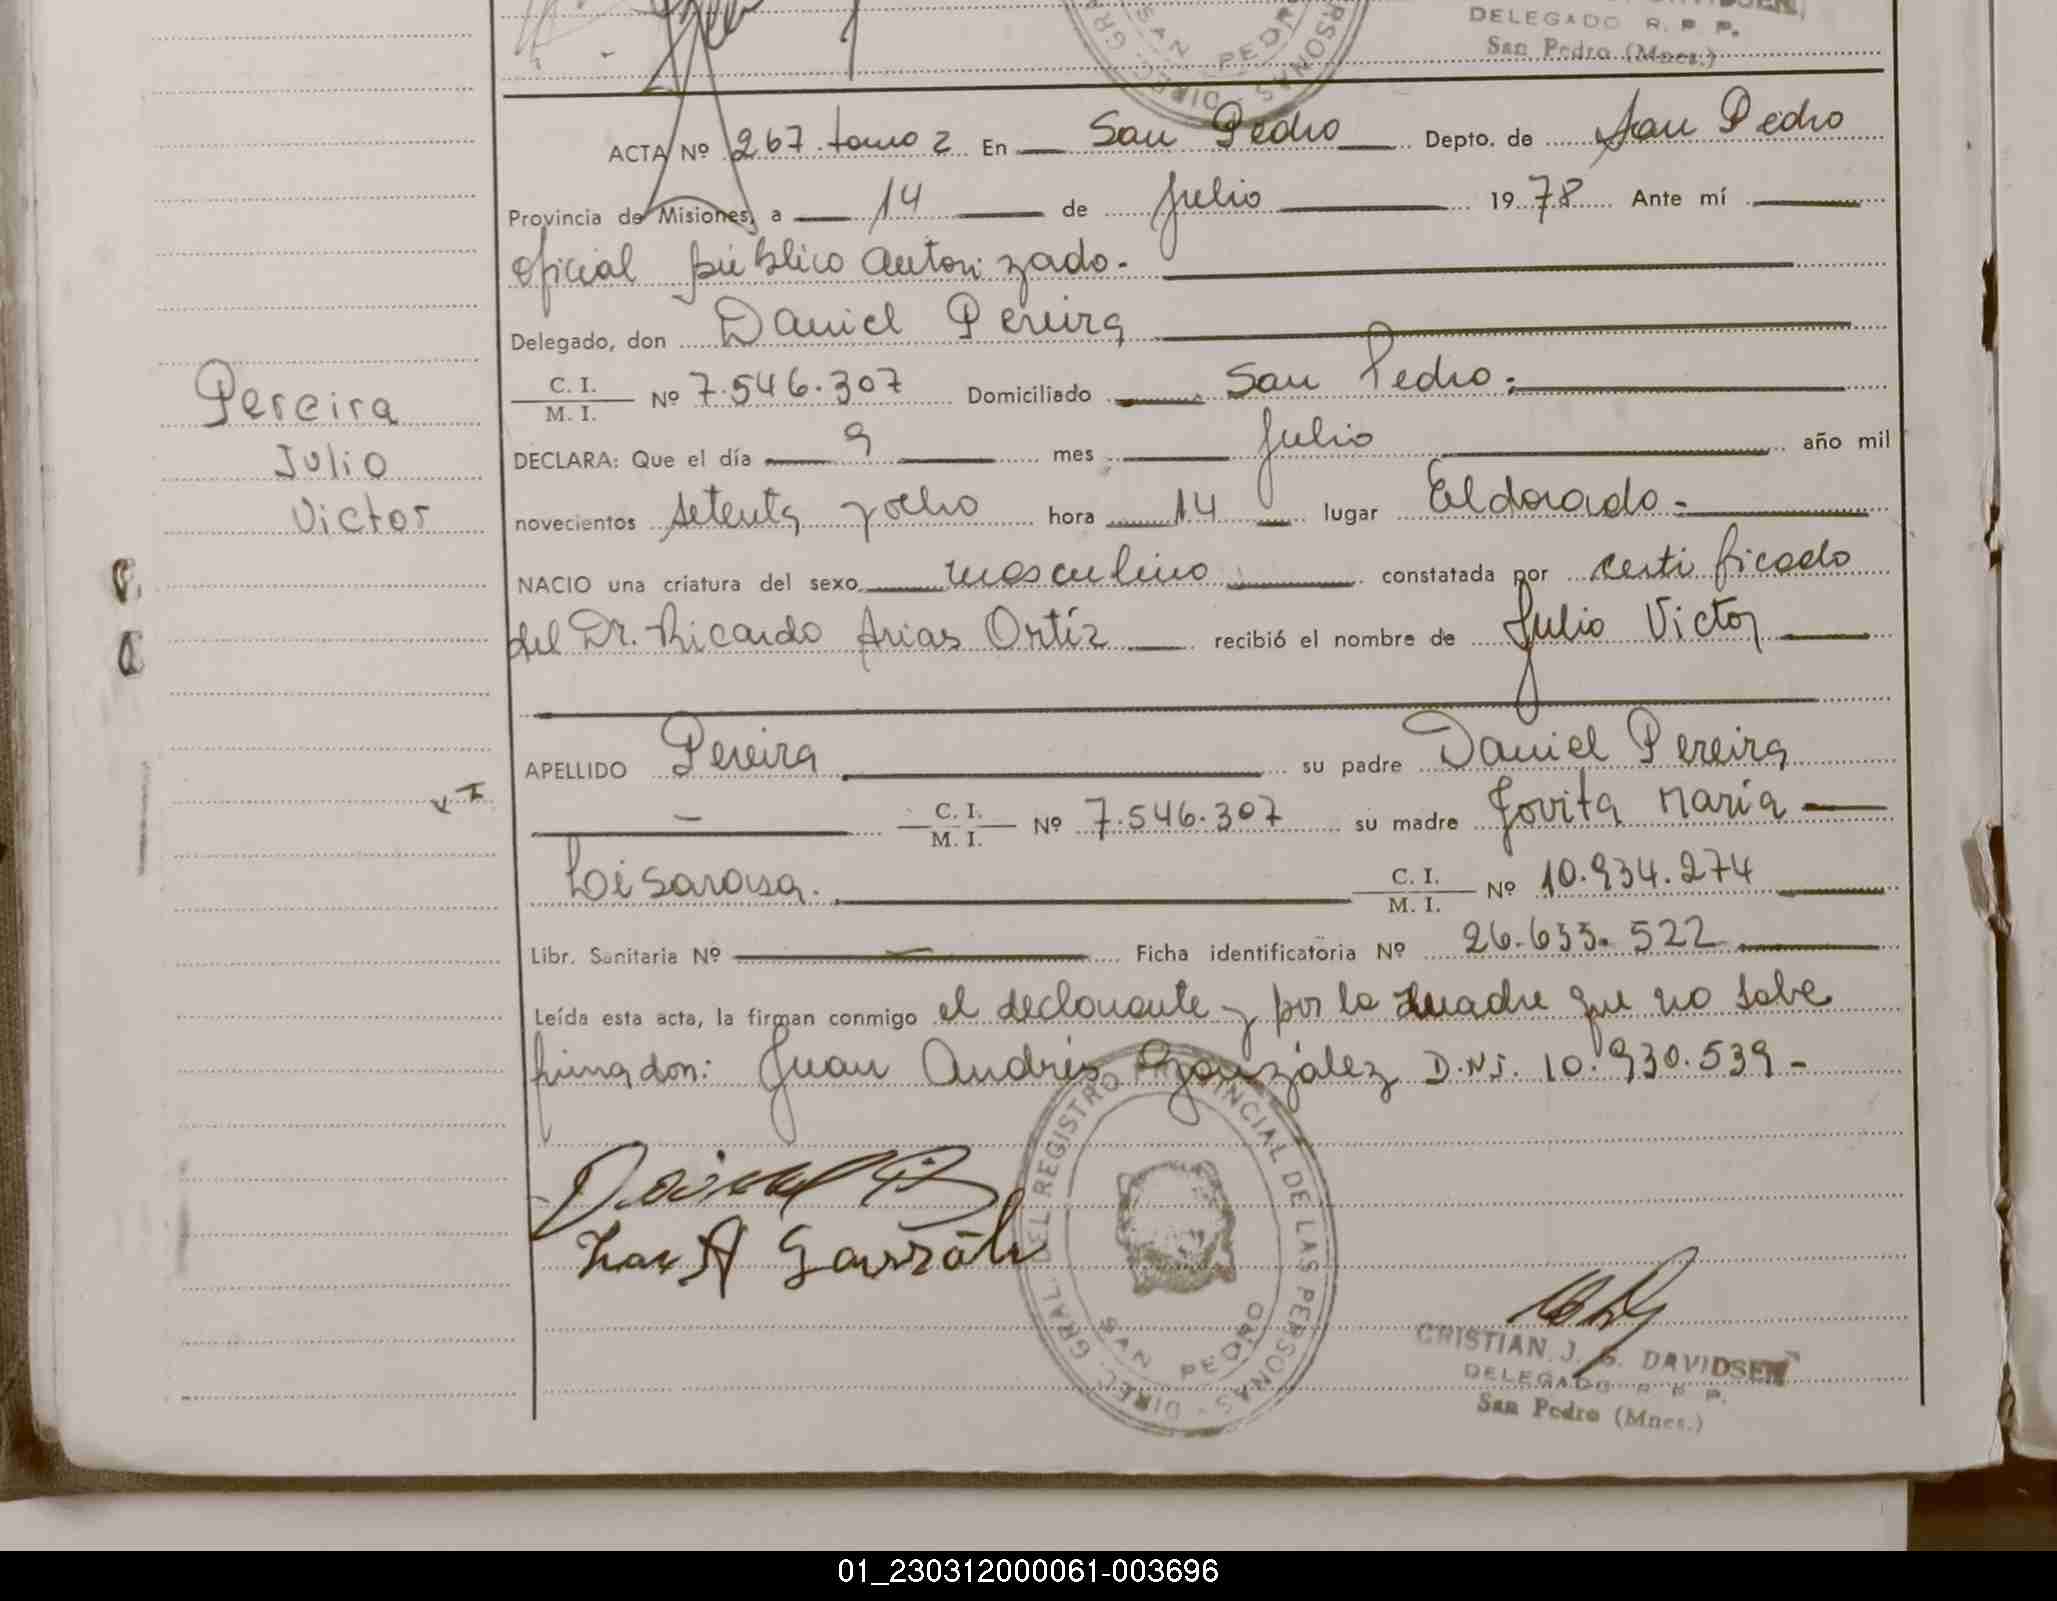 DELEGADO R. P. P.
San Pedro (Mnes.)
SAN PEDRO
ACTA Nº 267 tomo 2 En San Pedro Depto. de San Pedro
Provincia de Misiones, a 14 de Julio 1978 Ante mí
oficial público autorizado.
Delegado, don Daniel Pereira
C. I. / M. I. Nº 7.546.307 Domiciliado San Pedro.
Pereira
Julio
Victor
DECLARA: Que el día 9 mes Julio año mil
novecientos setenta y ocho hora 14 lugar Eldorado
NACIO una criatura del sexo masculino constatada por certificado
del Dr. Ricardo Arias Ortíz recibió el nombre de Julio Victor
APELLIDO Pereira su padre Daniel Pereira
C. I. / M. I. Nº 7.546.307 su madre Jovita María
C. I. / M. I. Nº 10.934.274
Libr. Sanitaria Nº Ficha identificatoria Nº 26.635.522
Leída esta acta, la firman conmigo el declarante y por la madre que no sabe
firmar don: Juan Andrés González D.N.I. 10.930.539-
DIREC. GRAL. DEL REGISTRO PROVINCIAL DE LAS PERSONAS -
SAN PEDRO
CRISTIAN J. G. DAVIDSEN
DELEGADO R. P. P.
San Pedro (Mnes.)
01_230312000061-003696